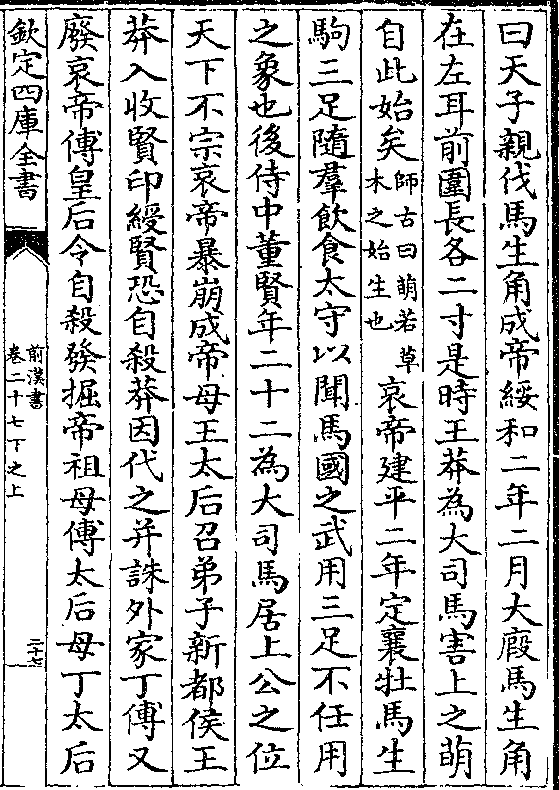 曰天子親伐馬生角成帝綏和二年二月大廄馬生角
在左耳前圍長各二寸是時王莽為大司馬害上之萌
自此始矣師古曰萌若草木之始生也哀帝建平二年定襄牡馬生
駒三足隨羣飲食太守以聞馬國之武用三足不任用
之象也後侍中董賢年二十二為大司馬居上公之位
天下不宗哀帝暴崩成帝母王太后召弟子新都侯王
莽入收賢印綬賢恐自殺莽因代之并誅外家丁傅又
廢哀帝傅皇后令自殺發掘帝祖母傅太后母丁太后
欽定四庫全書
前漢書
卷二十七下之上
二十七